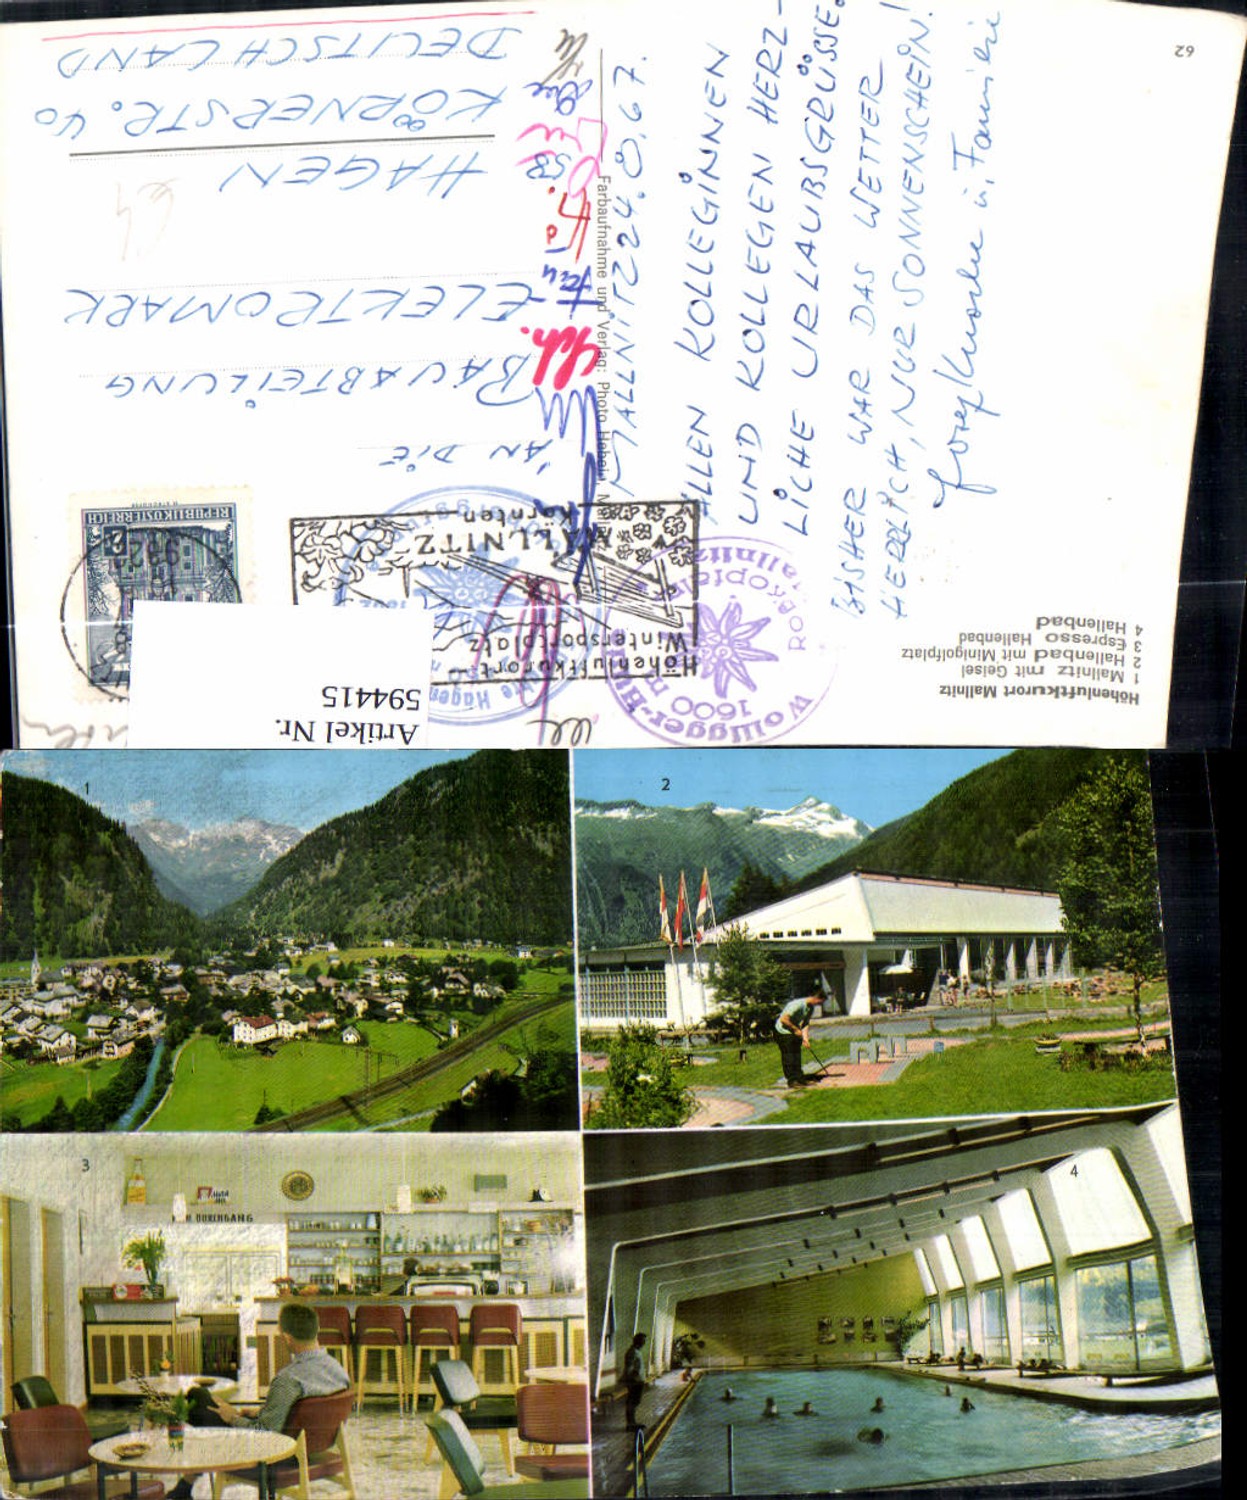 62
Höhenluftkurort Mallnitz
1 Mallnitz mit Geisel
2 Hallenbad mit Minigolfplatz
3 Espresso Hallenbad
4 Hallenbad
MALLNITZ 24.8.67.
ALLEN KOLLEGINNEN
UND KOLLEGEN HERZ-
LICHE URLAUBSGRÜSSE.
BISHER WAR DAS WETTER
HERRLICH, NUR SONNENSCHEIN!
Josef u. Familie
Farbaufnahme und Verlag: Photo
AN DIE
BAUABTEILUNG
ELEKTROMARK
HAGEN
KÖRNERSTR. 40
DEUTSCHLAND
REPUBLIK ÖSTERREICH
2
9822
Höhenluftkurort
Wintersportplatz
MALLNITZ
Kärnten
1600 m
Mallnitz
Hagen
Artikel Nr.
594415
1
2
3
DURCHGANG
4